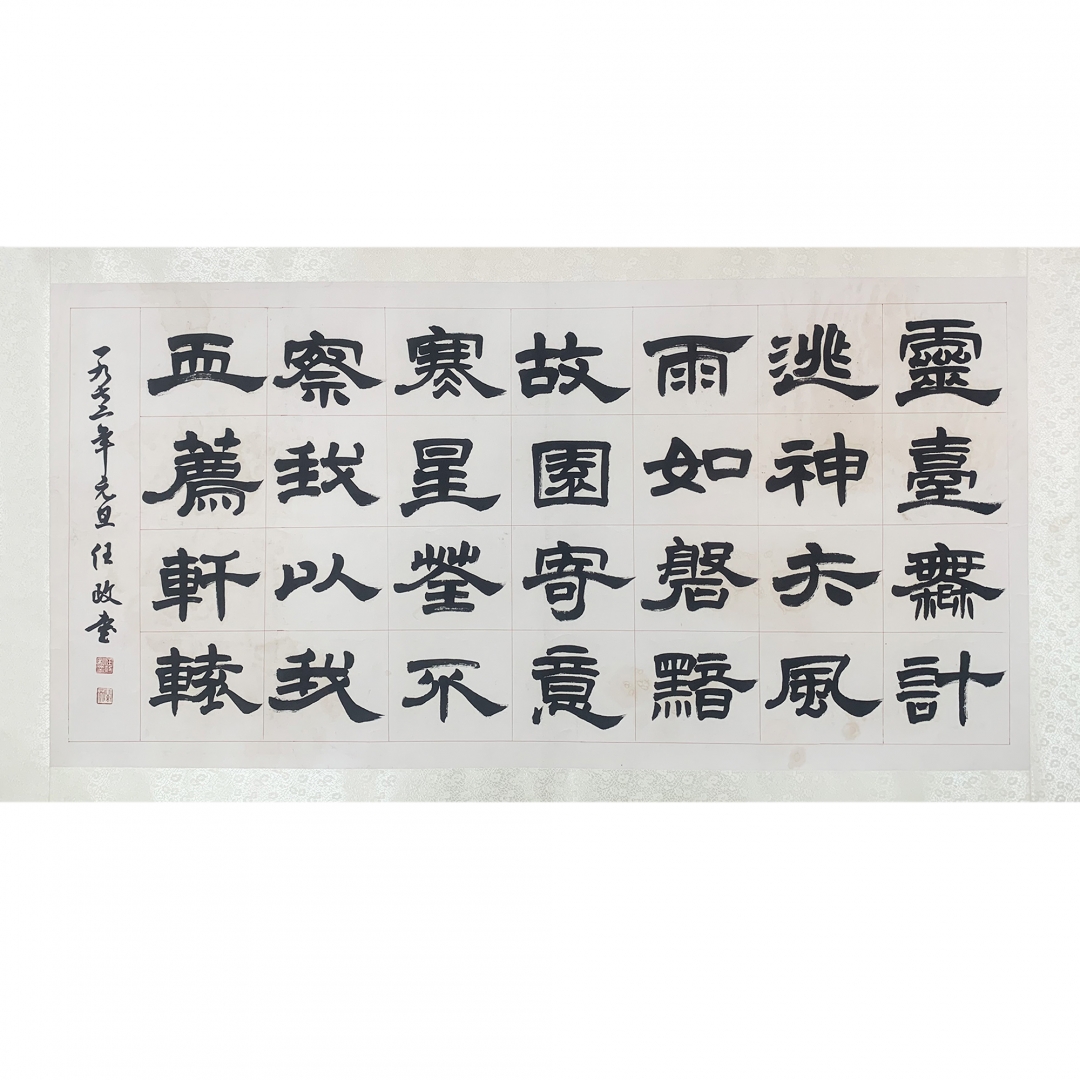 靈臺無計
逃神矢風
雨如磐黯
故園寄意
寒星荃不
察我以我
血薦軒轅
一九七二年元旦任政書